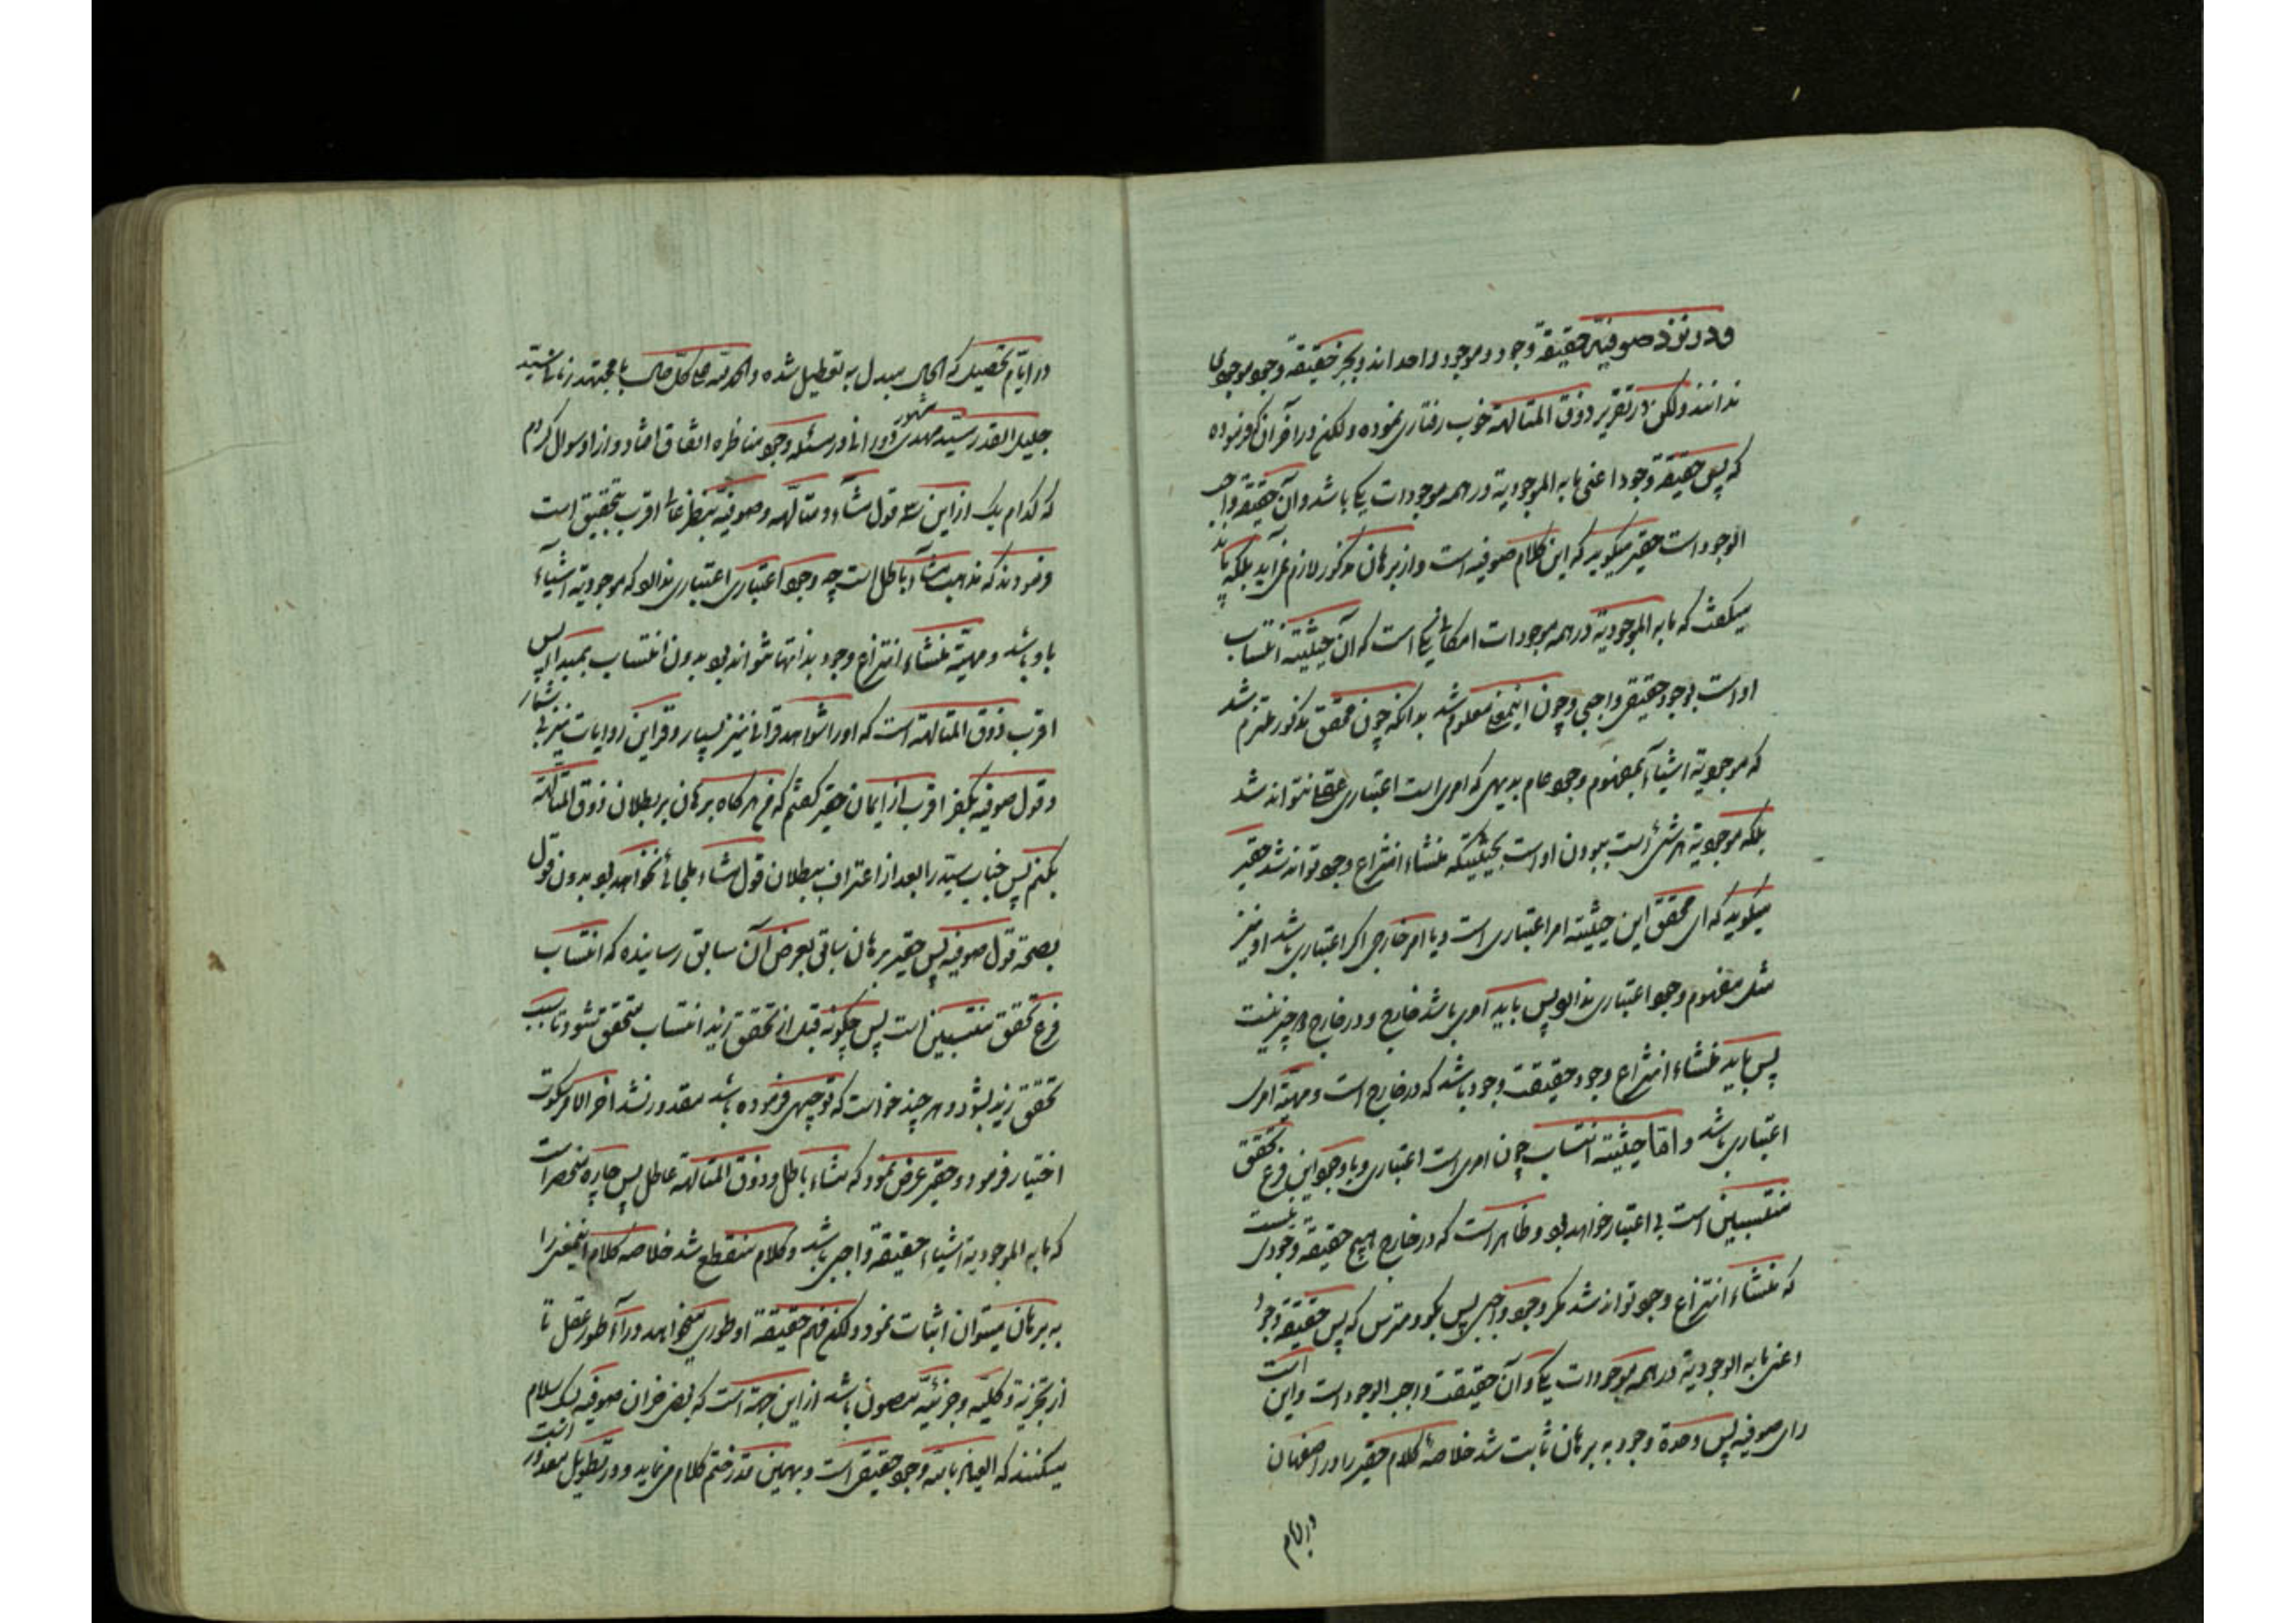 و در نزد صوفیه حقیقة وجود و موجود واحد اند و بجز حقیقة وجود موجودی
ندانند ولکن در تقریر ذوق المتألهة خوب رفتاری نموده ولکن در آخر آن ذکر فرموده
که پس حقیقة وجود اعنی ما به الموجودیة در همه موجودات یکی باشد و آن حقیقة واجب
الوجود است حقیر میگوید که این کلام صوفیه است و از برهان مذکور لازم نمی‌آید بلکه باید
میگفت که ما به الموجودیة در همه موجودات امکانی یکی است که آن حیثیته انتساب
او است بوجود حقیقی واجبی و چون اینمعنی معلوم شد بدانکه چون محقق مذکور ملتزم شد
که موجودیة اشیاء بمفهوم وجود عام بدیهی که امری است اعتباری عقلا نتواند شد
بلکه موجودیة هر شئ است ببودن او است بحیثیتیکه منشاء انتزاع وجود تواند شد حقیر
میگوید که ای محقق این حیثیته امر اعتباری است و یا امر خارجی اگر اعتباری باشد او نیز
مثل مفهوم وجود اعتباری ندارد پس باید امری باشد خارج و در خارج چیز نیست
پس باید منشاء انتزاع وجود حقیقت وجود باشد که در خارج است و مهیّة امری
اعتباری باشد و امّا حیثیته انتساب چون امری است اعتباری و با وجود این فرع تحقق
منتسبین است بی اعتبار خواهد بود و ظاهر است که در خارج هیچ حقیقة وجودی نیست
که منشاء انتزاع وجود تواند شد مگر وجود واجبی پس بگو و مترس که پس حقیقة وجود
اعنی ما به الوجودیة در همه موجودات یکی است و آن حقیقت واجب الوجود است و این
رای صوفیه پس وحدة وجود به برهان ثابت شد خلاصهٔ کلام حقیر را در اصفهان
در ایام
در ایّام تحصیل که الحال مبدل به تعطیل شده و الحمد لله علی کل حال با مجتهد زمان سیّد
جلیل القدر سیّد مهدی مشهور در مسئله وجود مناظره اتفاق افتاد و از او سوال کردم
که کدام یک از این سه قول مشاء و متألّهه و صوفیّه بنظر عالی اقرب بتحقیق است
فرمودند که مذهب مشاء باطل است چه وجود اعتباری اعتباری ندارد که موجودیة اشیاء
باو باشد و مهیّة منشاء انتزاع وجود بذاتها نتواند بود بدون انتساب بمبدأ پس
اقرب ذوق المتألهة است که او را شواهد قرانی نیز بسیار و قراین روایات نیز بی شمار
و قول صوفیه بکفر اقرب از ایمان حقیر گفتم که من هرگاه برهان بر بطلان ذوق المتألهة
بکنم پس جناب سیّد را بعد از اعتراف ببطلان قول مشاء ملجائی نخواهد بود بدون قول
بصحة قول صوفیه پس حقیر برهان سابق بعرض آن سابق رسانیده که انتساب
فرع تحقق منتسبین است پس چگونه قبل از تحقق زید انتساب متحقق شود تا سبب
تحقق زید بشود و هر چند خواست که توجیهی فرموده باشد مقدور نشد اخر الامر سکوت
اختیار فرمود و حقیر عرض نمود که مشاء باطل و ذوق المتألهة عاطل پس چاره منحصر است
که ما به الموجودیة اشیاء حقیقة واجبی باشد و کلام منقطع شد خلاصه کلام اینمعنی را
به برهان میتوان اثبات نمود ولکن فهم حقیقة او طوری میخواهد وراء طور عقل تا
از تجزیة و کلیّه و جزئیّه مصون باشد از این جهة است که بعض صوفیه اسلام
میکنند که العیاذ بالله وجود حقیقی است و بهمین قدر ختم کلام می‌نماید و در تطویل معذور است